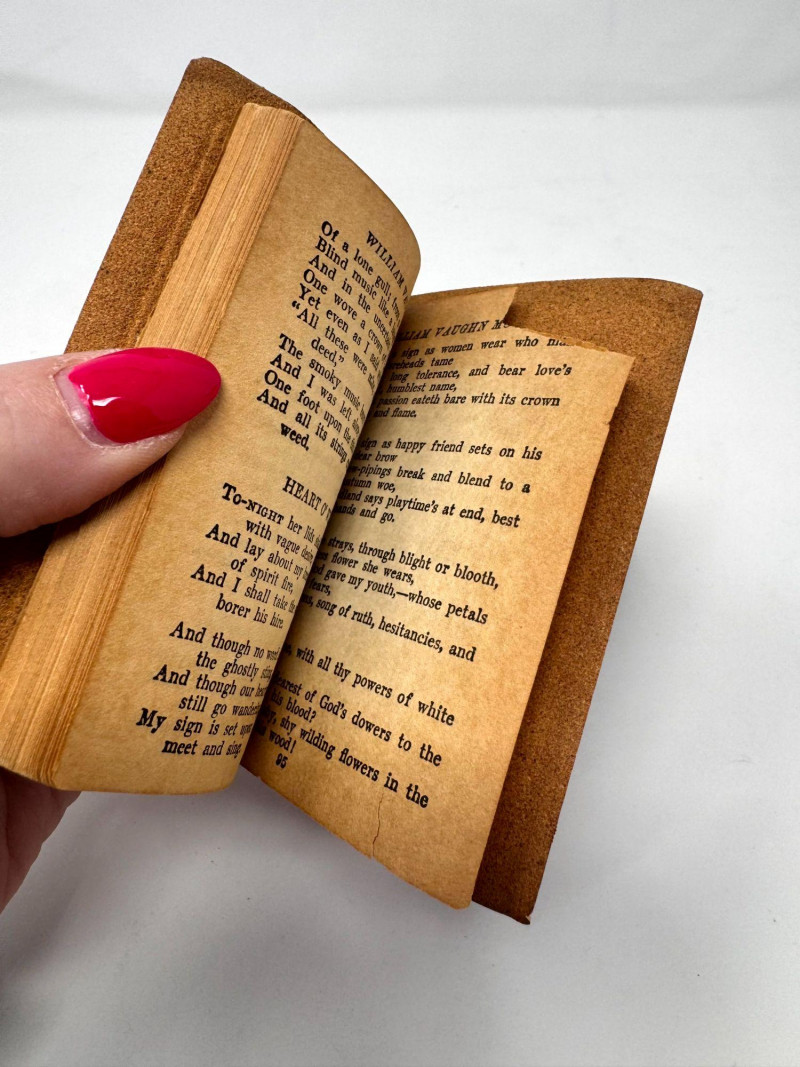 WILLIAM
Of a lone gull;
Blind music like a
And in the
One wove a crown of
Yet even as I said
"All these were
deed,"
The smoky music
And I was left
One foot upon the
And all its strings
weed.
HEART
To-NIGHT her lids
with vague
And lay about my
of spirit fire,
And I shall take the
borer his hire.
And though no
the ghostly
And though our
still go
My sign is set upon
meet and sing.
VAUGHN
sign as women wear who
foreheads tame
long tolerance, and bear love's
humblest name,
passion eateth bare with its crown
and flame.
sign as happy friend sets on his
brow
-pipings break and blend to a
autumn woe,
says playtime's at end, best
hands and go.
strays, through blight or blooth,
flower she wears,
gave my youth,—whose petals
song of ruth, hesitancies, and
with all thy powers of white
of God's dowers to the
his blood?
shy wilding flowers in the
wood!
95